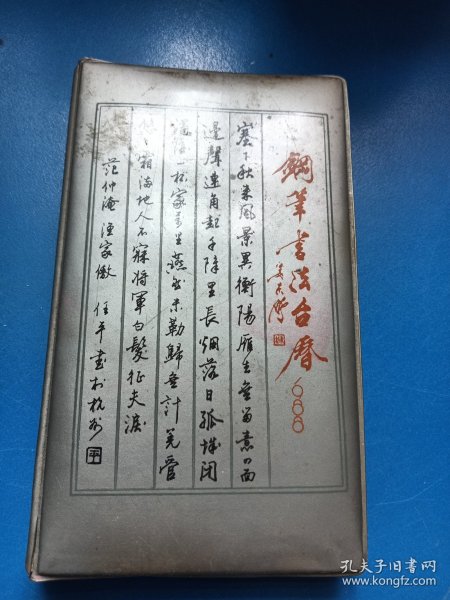 鋼筆書法台曆
姜东舒
塞下秋来風景異衡陽雁去無留意四面
邊聲連角起千障里長烟落日孤城閉
濁酒一杯家万里燕然未勒歸無計羌管
悠〻霜满地人不寐将軍白髮征夫淚
范仲淹漁家傲 任平書於杭州
平
孔夫子旧书网
www.kongfz.com